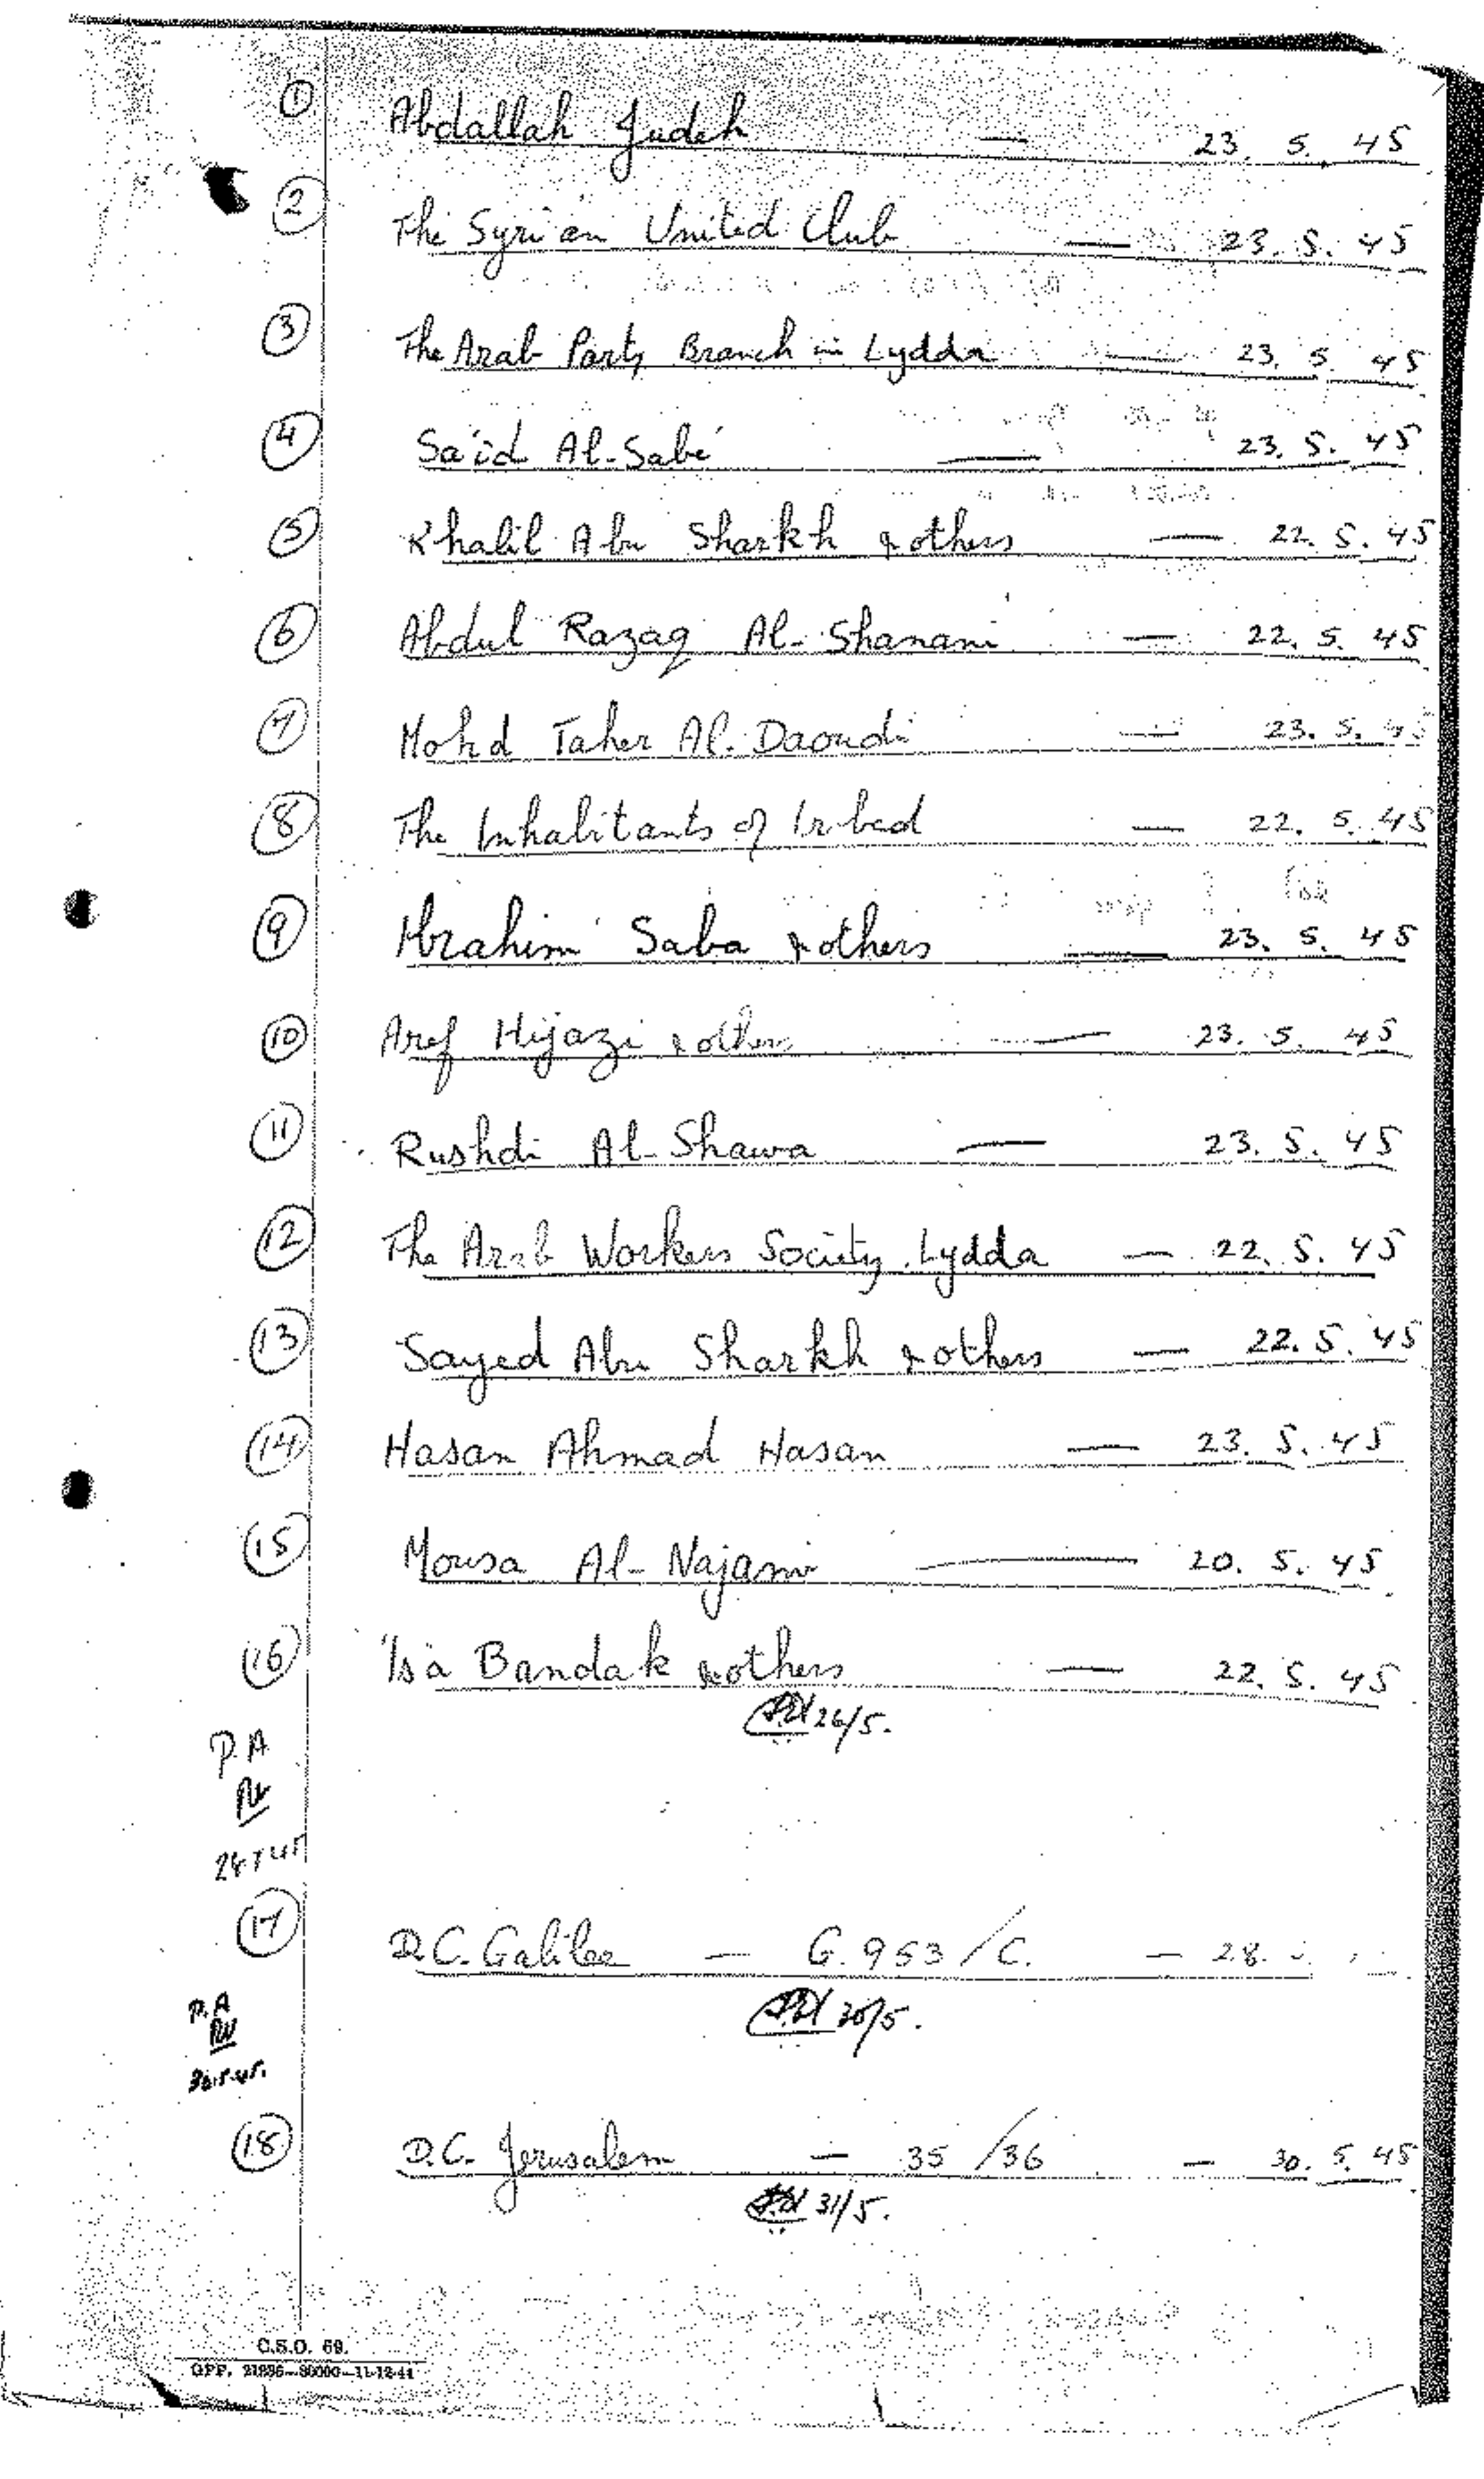 ① Abdallah Judeh — 23. 5. 45
② The Syrian United Club — 23. 5. 45
③ The Arab Party Branch in Lydda — 23. 5. 45
④ Sa'id Al-Sabe' — 23. 5. 45
⑤ Khalil Abu Sharkh & others — 22. 5. 45
⑥ Abdul Razaq Al-Shanani — 22. 5. 45
⑦ Mohd Taher Al-Daoudi — 23. 5. 45
⑧ The Inhabitants of Irbed — 22. 5. 45
⑨ Ibrahim Saba & others — 23. 5. 45
⑩ Aref Hijazi & others — 23. 5. 45
⑪ Rushdi Al-Shawa — 23. 5. 45
⑫ The Arab Workers Society, Lydda — 22. 5. 45
⑬ Sayed Abu Sharkh & others — 22. 5. 45
⑭ Hasan Ahmad Hasan — 23. 5. 45
⑮ Mousa Al-Najami — 20. 5. 45
⑯ 'Isa Bandak & others — 22. 5. 45
26/5.
P.A
⑰ D.C. Galilee — G. 953/C. — 28.
30/5.
P.A
30.5.45.
⑱ D.C. Jerusalem — 35/36 — 30. 5. 45
31/5.
C.S.O. 69.
GPP. 21236—80000—11-12-44